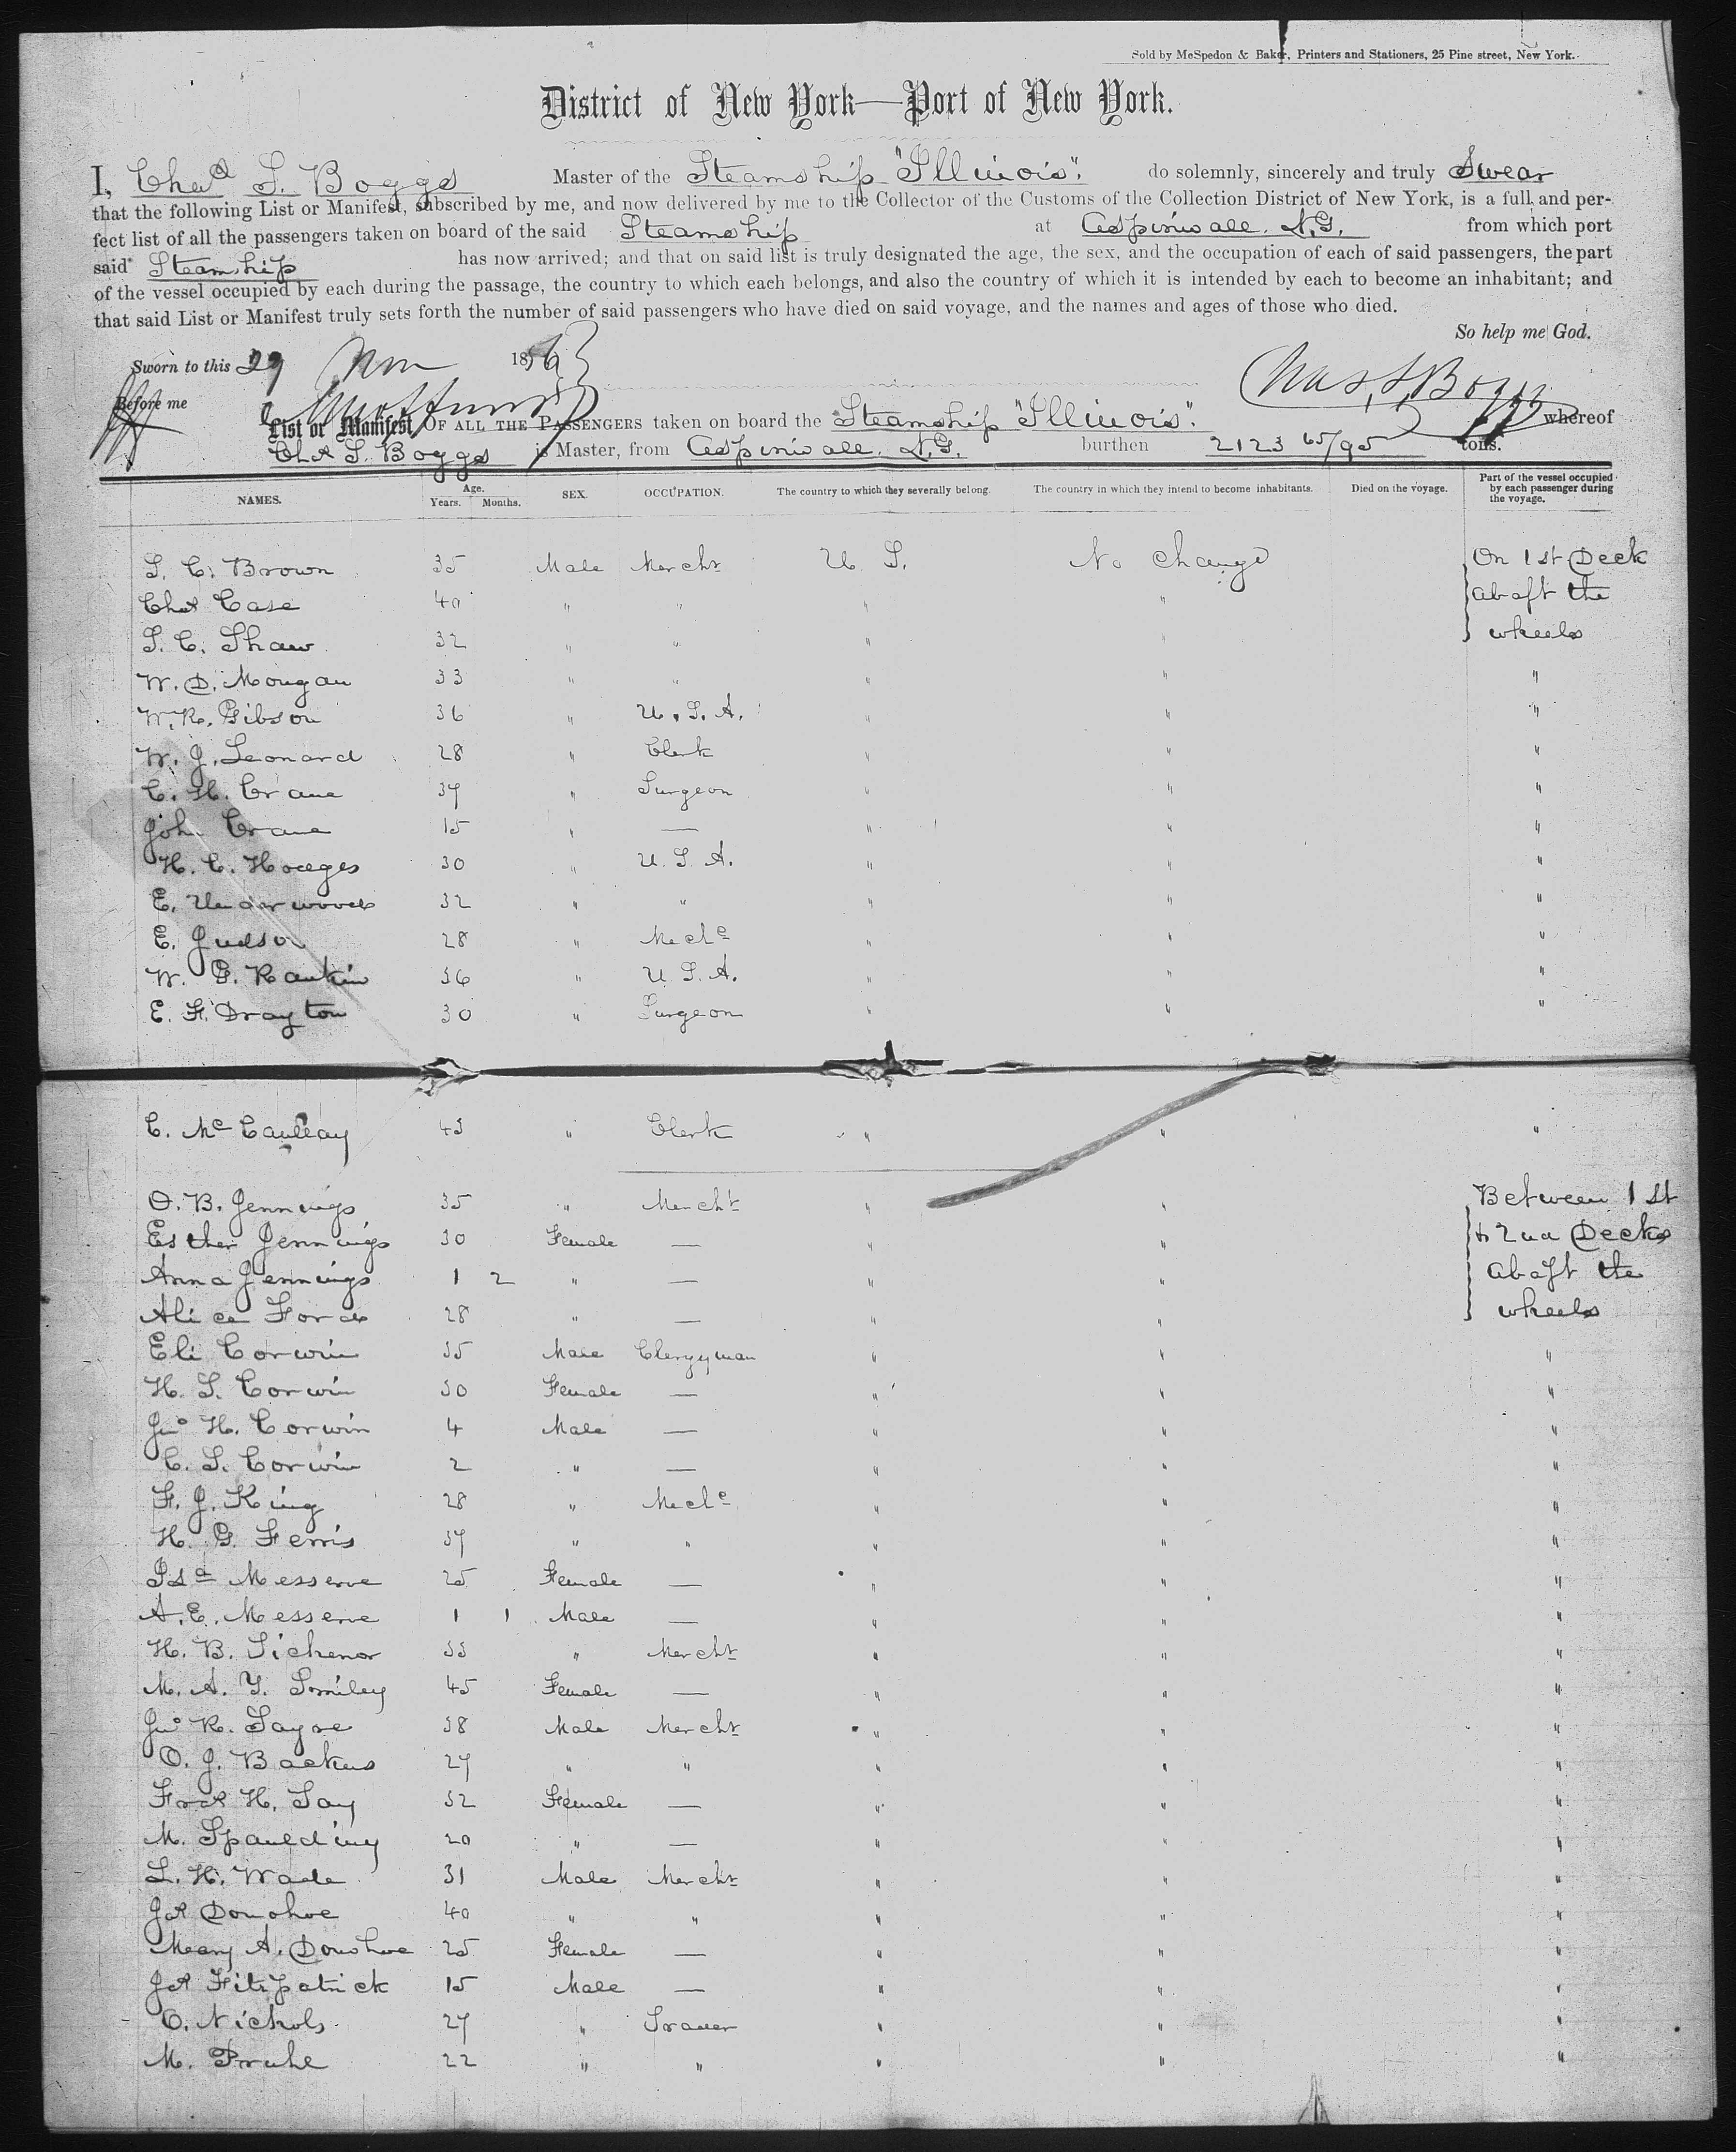 Sold by McSpedon & Baker, Printers and Stationers, 25 Pine street, New York.
District of New York—Port of New York.
I, Chas S. Boggs Master of the Steamship "Illinois". do solemnly, sincerely and truly Swear
that the following List or Manifest, subscribed by me, and now delivered by me to the Collector of the Customs of the Collection District of New York, is a full and per-
fect list of all the passengers taken on board of the said Steamship at Aspinwall. N.G. from which port
said Steamship has now arrived; and that on said list is truly designated the age, the sex, and the occupation of each of said passengers, the part
of the vessel occupied by each during the passage, the country to which each belongs, and also the country of which it is intended by each to become an inhabitant; and
that said List or Manifest truly sets forth the number of said passengers who have died on said voyage, and the names and ages of those who died.
So help me God.
Sworn to this 29 18
Before me Chas. S. Boggs
List or Manifest OF ALL THE PASSENGERS taken on board the Steamship "Illinois". whereof
Chs S. Boggs is Master, from Aspinwall. N.G. burthen 2123 65/95 tons.
NAMES. Age. Years. Months. SEX. OCCUPATION. The country to which they severally belong. The country in which they intend to become inhabitants. Died on the voyage. Part of the vessel occupied by each passenger during the voyage.
S. C. Brown 35 Male Mercht U. S. No change On 1st Deck
Chas Case 40 " " " " abaft the
S. C. Shaw 32 " " " " wheels
W. D. Mougan 33 " " " " "
W. R. Gibson 36 " U. S. A. " " "
W. J. Leonard 28 " Clerk " " "
C. H. Crane 37 " Surgeon " " "
John Crane 15 " — " " "
H. C. Hodges 30 " U. S. A. " " "
E. Underwood 32 " " " " "
E. Judson 28 " Mече " " "
W. G. Rankin 36 " U. S. A. " " "
E. F. Drayton 30 " Surgeon " " "
C. Mc Caulay 43 " Clerk " " "
O. B. Jennings 35 " Mercht " " Between 1st
Esther Jennings 30 Female — " " & 2nd Decks
Anna Jennings 1 2 " — " " abaft the
Alice Ford 28 " — " " wheels
Eli Corwin 35 Male Clergyman " " "
H. S. Corwin 30 Female — " " "
Jno H. Corwin 4 Male — " " "
C. S. Corwin 2 " — " " "
F. J. King 28 " Meche " " "
H. G. Ferris 37 " " " " "
Isa Messerve 25 Female — " " "
A. E. Messerve 1 1 Male — " " "
H. B. Tichenor 33 " Mercht " " "
M. A. Y. Smiley 45 Female — " " "
Jno R. Sayre 38 Male Mercht " " "
O. J. Backus 27 " " " " "
Fred H. Say 32 Female — " " "
M. Spaulding 20 " — " " "
L. H. Wade 31 Male Mercht " " "
Jas Donohoe 40 " " " " "
Mary A. Donohoe 25 Female — " " "
Jas Fitzpatrick 15 Male — " " "
C. Nichols 27 " Trader " " "
M. Pruhl 22 " " " " "